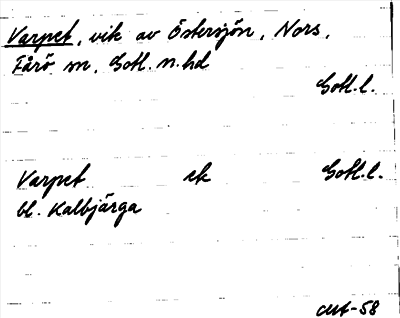 Varpet, vik av Östersjön, Nors,
Fårö sn, Gotl. n. hd
Gotl. l.
Varpet ek Gotl. l.
bl. Kalbjärga
-58